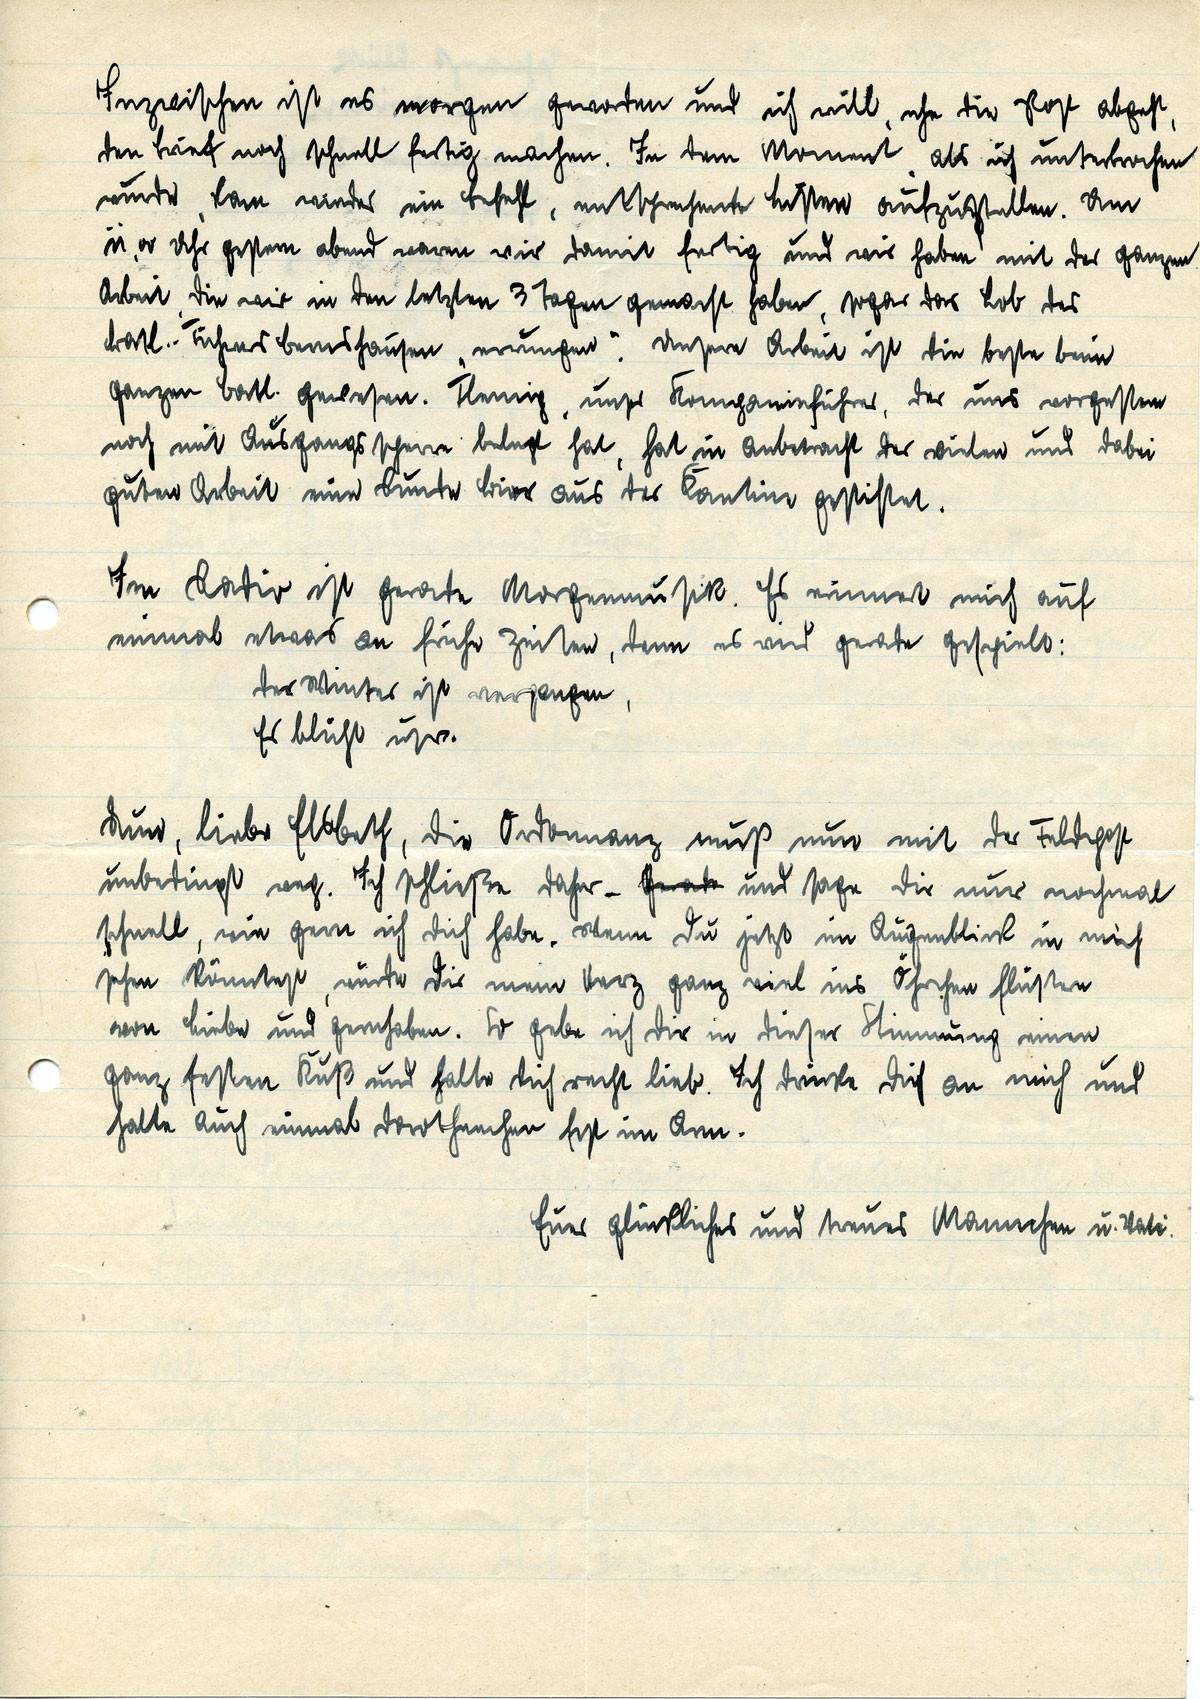 Inzwischen ist es morgen geworden und ich will, ehe die Post abgeht,
den Brief noch schnell fertig machen. In dem Moment, als ich unterbrochen
wurde, kam wieder ein Befehl, entsprechende Listen aufzustellen. Um
11,00 Uhr gestern abend waren wir damit fertig und wir haben mit der ganzen
Arbeit, die wir in den letzten 3 Tagen gemacht haben, sogar das Lob des
Batl.-Führers Bernshausen „errungen“. Unsere Arbeit ist die beste beim
ganzen Batl. gewesen. Flemig, unser Kompanieführer, der uns vorgestern
noch mit Ausgangssperre belegt hat, hat in Anbetracht der vielen und dabei
guten Arbeit eine Runde Bier aus der Kantine gestiftet.
Im Radio ist gerade Morgenmusik. Es erinnert mich auf
einmal etwas an frühe Zeiten, denn es wird gerade gespielt:
Der Winter ist vergangen,
Es blüht usw.
Nun, liebe Elsbeth, die Ordonnanz muß nun mit der Feldpost
unbedingt weg. Ich schließe daher - Gerade und sage Dir nur nochmal
schnell, wie gern ich Dich habe. Wenn Du jetzt im Augenblick in mich
sehen könntest, würde Dir mein Herz ganz viel ins Öhrchen flüstern
von Liebe und gernhaben. So gebe ich Dir in dieser Stimmung einen
ganz festen Kuß und halte Dich recht lieb. Ich drücke Dich an mich und
halte auch einmal Dorotheechen fest im Arm.
Euer glückliches und treues Mannchen u. Vati.